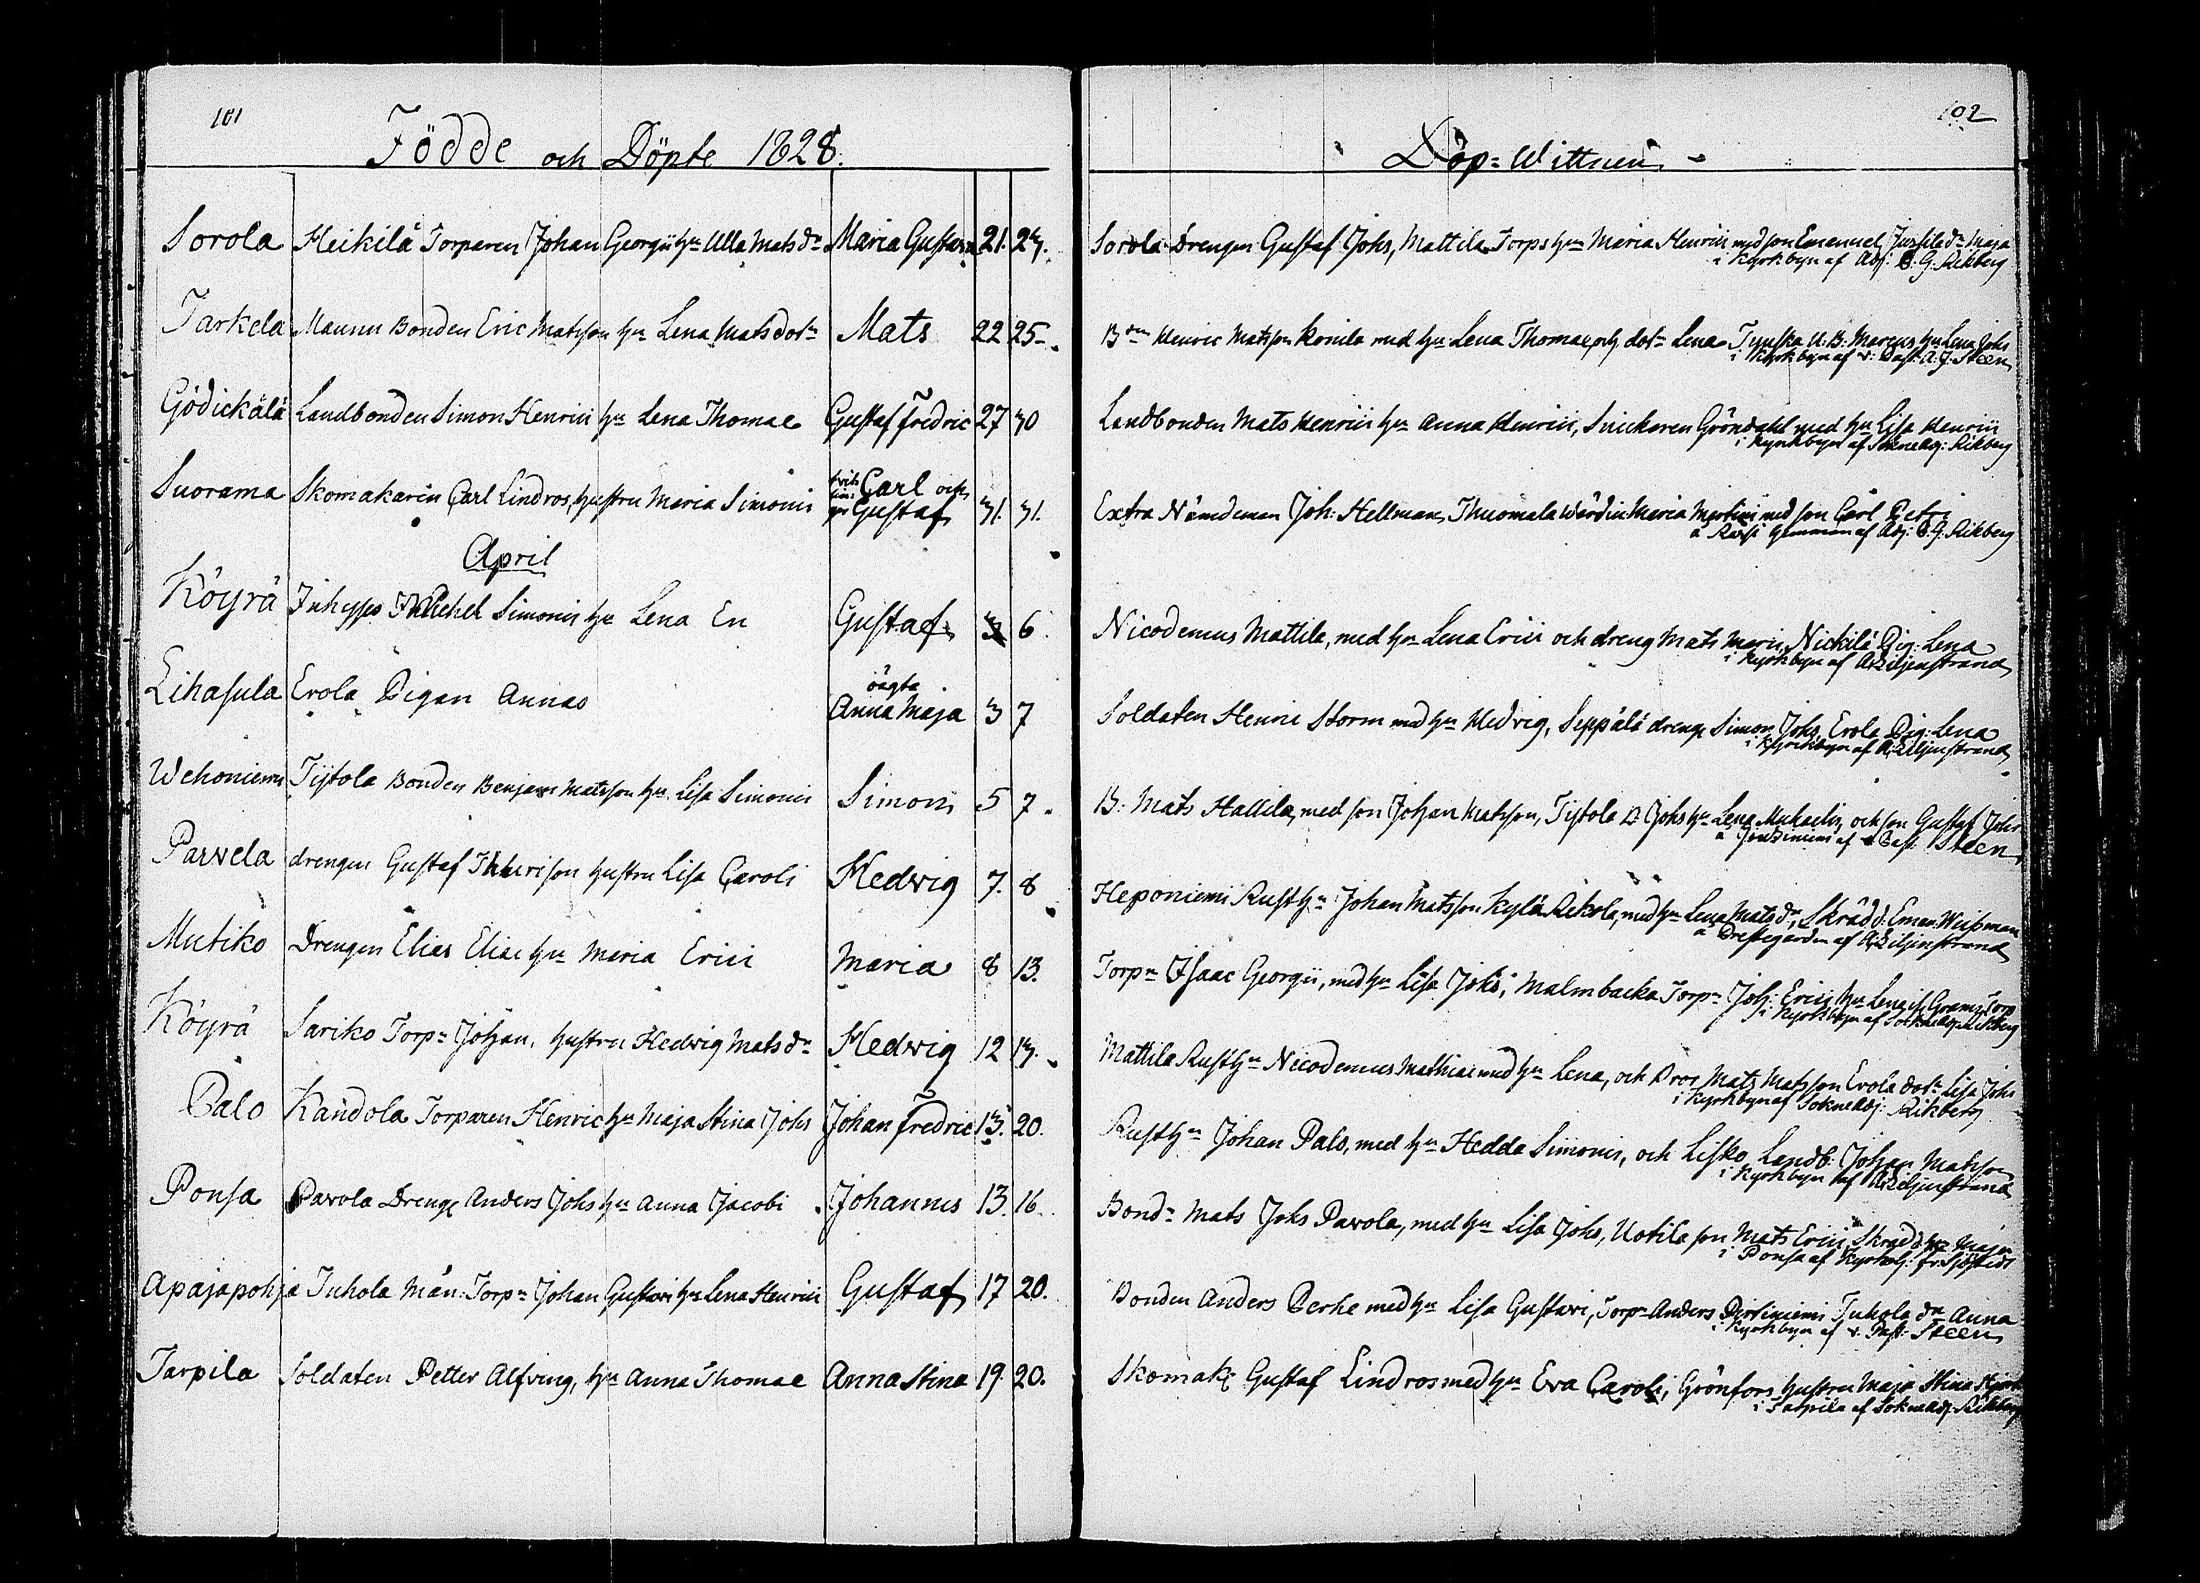 101
Födde och Döpte 1828.
Sorola Heikilä Torparen Johan Georgii hu Ulla Matsdr Maria Gustava 21. 24.
Tarkela Maunu Bonden Eric Matsson hu Lena Matsdotr Mats 22 25.
Gödickälä Landbonden Simon Henrici hu Lena Thomae Gustaf Fredric 27 30
Suorama Skomakarin Carl Lindros, hustru Maria Simonis Carl och
Gustaf 31. 31.
April
Köyrä Inhyses Michel Simonis hu Lena En Gustaf 3 6.
oägta
Lihasula Erola Pigan Annas Anna Maja 3 7
Wehoniemi Tijtola Bonden Benjam Matsson hu Lisa Simonis Simon 5 7.
Parvela drengen Gustaf hustru Lisa Caroli Hedvig 7. 8
Mutiko Drengen Elias Eliae hu Maria Erici Maria 8 13.
Köyrä Sariko Torpn Johan, hustru Hedvig Matsdr Hedvig 12 13.
Palo Kandola Torparen Henric hu Maja Stina Johs Johan Fredric 13. 20.
Ponsa Pavola Dreng Anders Johs hu Anna Jacobi Johannes 13. 16.
Apajapohja Juhola Mån. Torpn Johan Gustavi hu Lena Henrici Gustaf 17 20.
Tarpila Soldaten Petter Alfving, hu Anna Thomae Anna Stina 19. 20.
102
Döp=Wittnen
Sorola Drengen Gustaf Johs, Mattila Torps hu Maria Henrici med son Emanuel, Jussila dr Maja
i Kyrkbyn af Adj: G. Rikberg
Bdn Henric Matsson Ronila med hu Lena Thomae, dotr Lena Marcus hu Lena Johs
i Kyrkbyn af v: Past: A. J. Steen
Landbonden Mats Henrici hu Anna Henrici, Snickaren Gröndahl med hu Lisa Henrici
i Kyrkbyn af Sokne Adj: Rikberg
Extra Nämdeman Joh: Hellman, Thuomala Wärdin Maria Martini med son Carl Petri
af Adj: G. Rikberg
Nicodemus Mattila, med hu Lena Erici och dreng Mats Nickilä Pig: Lena
i Kyrkbyn af A: Liljenstrand
Soldaten Henric Storm med hu Hedvig, Seppälä dreng Simon Johs, Erola Pig: Lena
i Kyrkbyn af A: Liljenstrand
B: Mats Hallila, med son Johan Matsson, Tijtola B Johs hu Lena Michaelis, och son Gustaf Johs
af v Past: Steen
Heponiemi Rusth Johan Matsson Kylä Rekola, med hu Lena Matsdr, Skrädd: Eman: Weisman
a Prestegården af A: Liljenstrand
Torpn Isaac Georgii, med hu Lisa Johs, Malmbacka Torpn Joh: Erici hu Lena
i Kyrkbyn af Sokne Adj: Rikberg
Mattila Rusth Nicodemus Mathiae med hu Lena, och Mats Matsson Erola dotr Lisa Johs
i Kyrkbyn af Sokne Adj: Rikberg
Rusth Johan Palo, med hu Hedda Simonis, och Lisko Landb: Johan Matsson
i Kyrkbyn af A: Liljenstrand
Bondn Mats Johs Pavola, med hu Lisa Johs, Uotila son Mats Erici, Skrädd hu Maja
i Ponsa af
Bonden Anders Perhe med hu Lisa Gustavi, Torpn Anders Juhola dr Anna
i Kyrkbyn af v: Past: Steen
Skomak: Gustaf Lindros med hu Eva Caroli, Grönfors hustru Maja Stina
i Tarpila af Sokne Adj: Rikberg